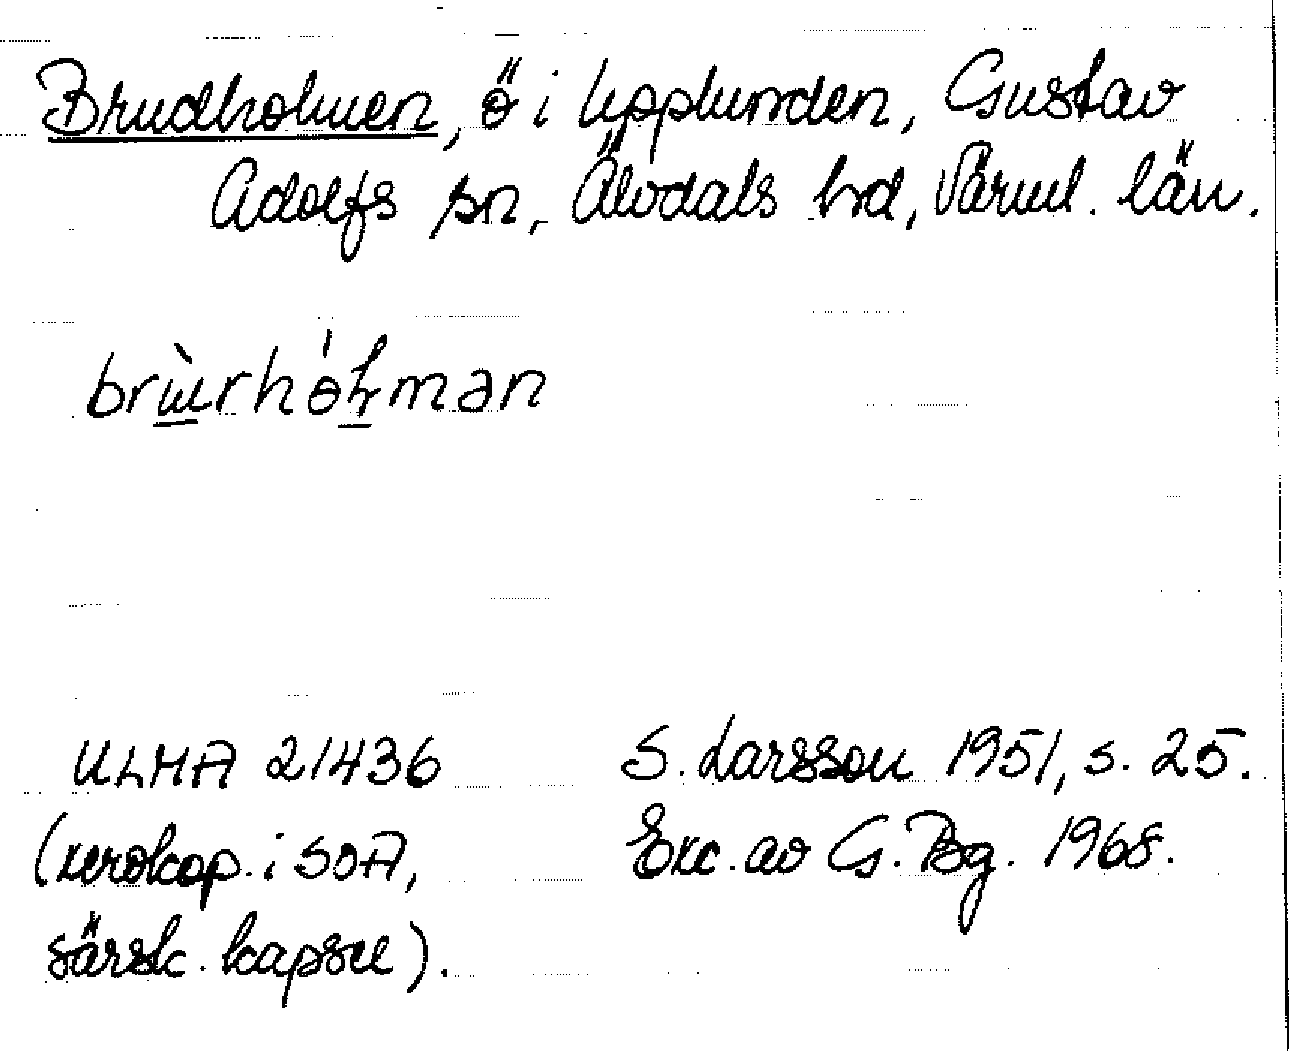 Brudholmen, ö i Upplunden, Gustav
Adolfs sn, Älvdals hd, Värml. län.
ULMA 21436
(xerokop. i SOA,
särsk. kapsel).
S. Larsson 1951, s. 25.
Exc. av G. Bg. 1968.